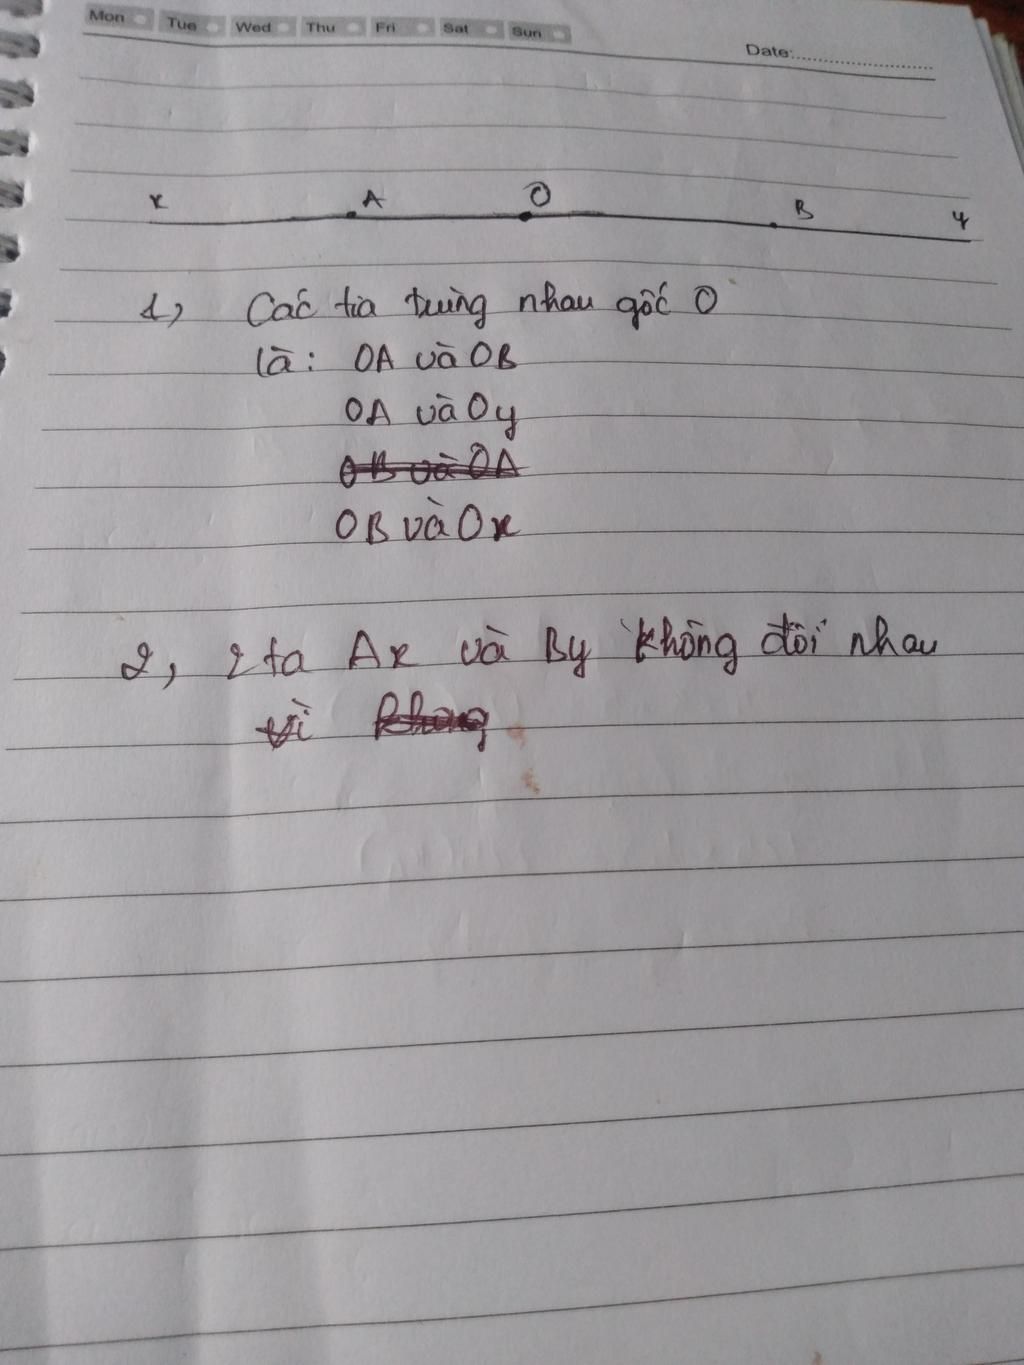 Mon Tue Wed Thu Fri Sat Sun
Date:
x A O B y
1, Các tia trùng nhau gốc O
là: OA và OB
OA và Oy
OB và OA
OB và Ox
2, 2 ta Ax và By không đối nhau
vì